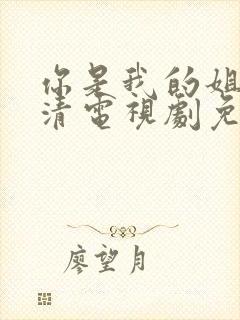 你是我的姐
清電視劇免
廖望月